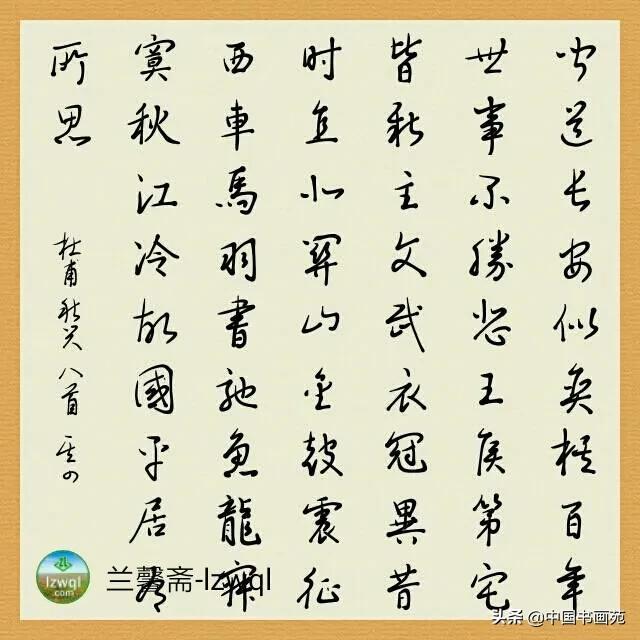 闻道长安似奕棋百年
世事不勝悲王侯第宅
皆新主文武衣冠異昔
时直北關山金鼓震征
西車馬羽書馳魚龍寂
寞秋江冷故國平居有
所思
杜甫秋兴八首 其四
lzwql
.com
兰馨斋-lzwql
头条 @中国书画苑